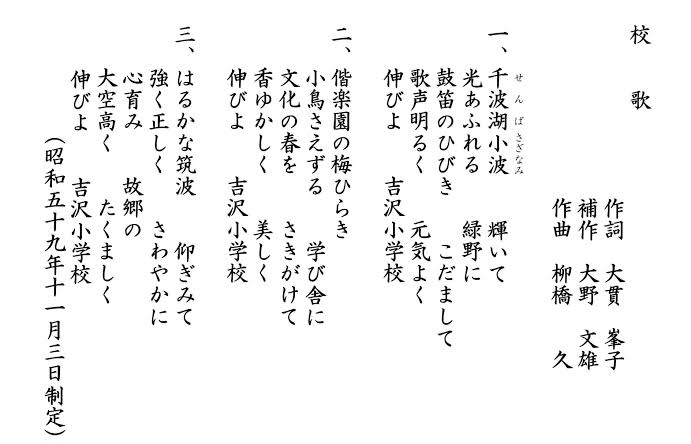 校　歌
作詞　大貫　峯子
補作　大野　文雄
作曲　柳橋　久
一、千波湖小波　輝いて
せんば　さざなみ
光あふれる　緑野に
鼓笛のひびき　こだまして
歌声明るく　元気よく
伸びよ　吉沢小学校
二、偕楽園の梅ひらき
小鳥さえずる　学び舎に
文化の春を　さきがけて
香ゆかしく　美しく
伸びよ　吉沢小学校
三、はるかな筑波　仰ぎみて
強く正しく　さわやかに
心育み　故郷の
大空高く　たくましく
伸びよ　吉沢小学校
（昭和五十九年十一月三日制定）